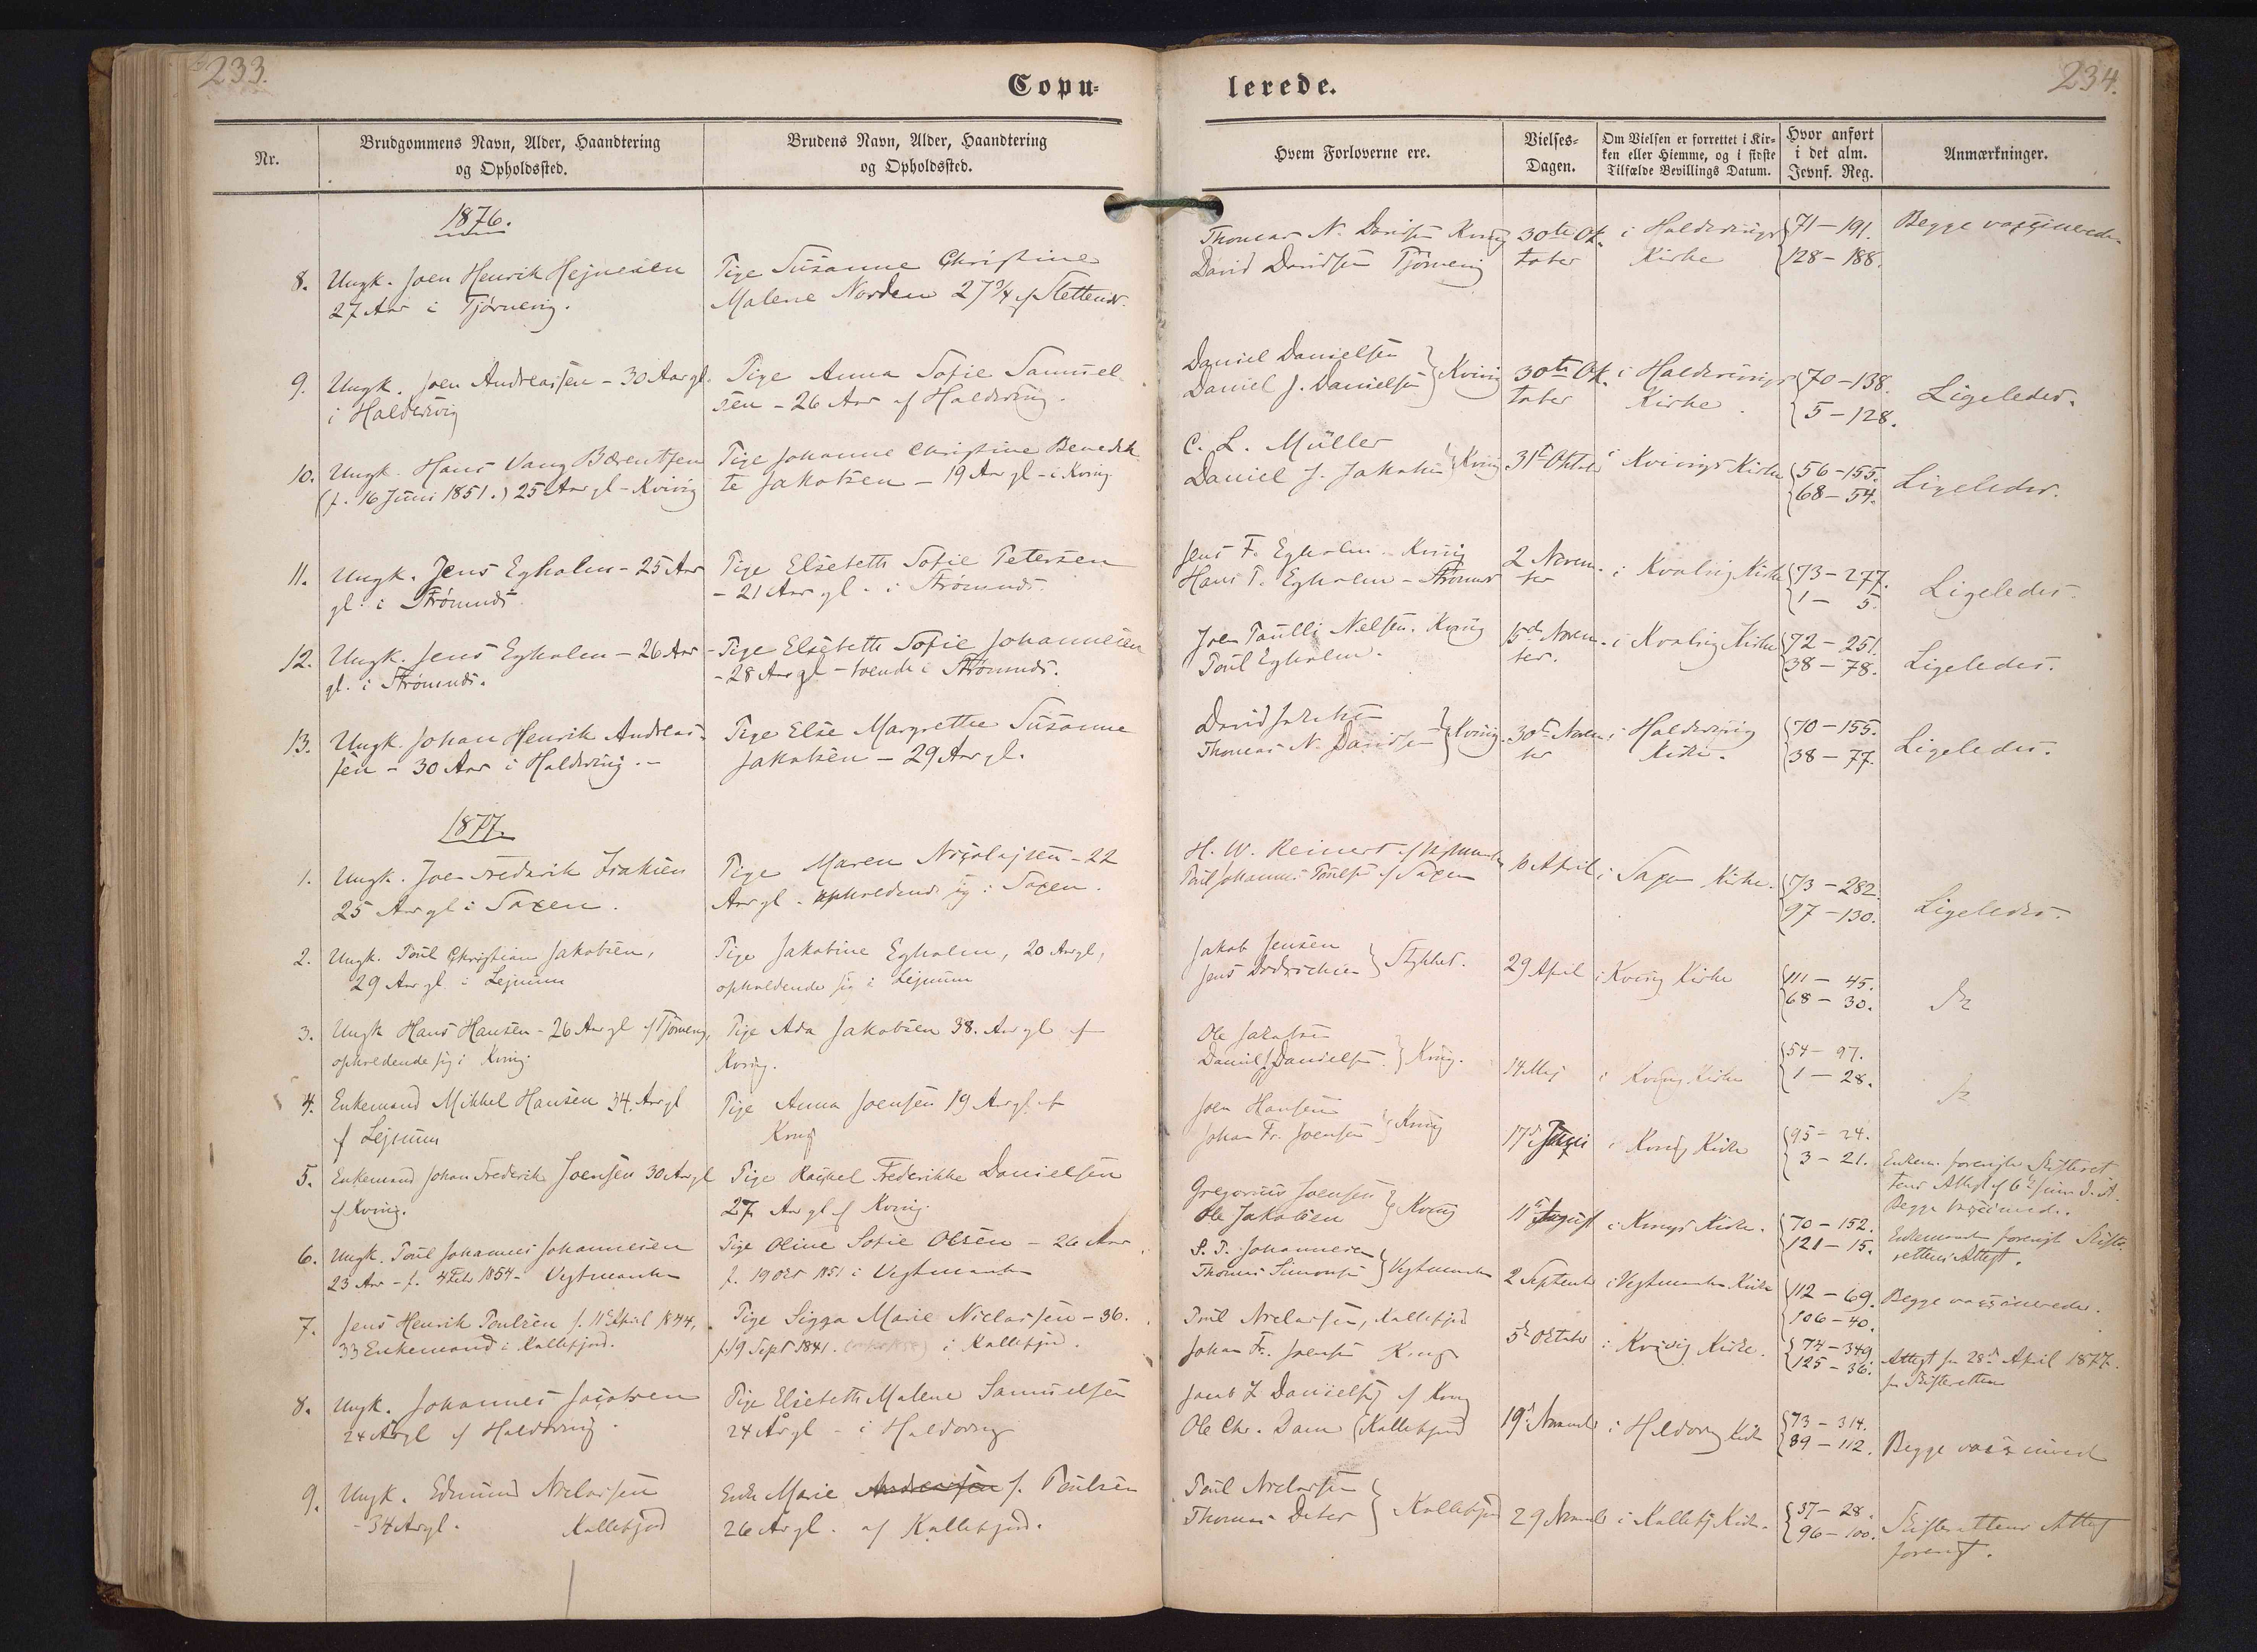 233.
Copu-
lerede.
234.
Nr.
Brudgommens Navn, Alder, Haandtering
og Opholdssted.
Brudens Navn, Alder, Haandtering
og Opholdssted.
Hvem Forloverne ere.
Vielses-
Dagen.
Om Vielsen er forrettet i Kir-
ken eller Hiemme, og i sidste
Tilfælde Bevillings Datum.
Hvor anført
i det alm.
Jevnf. Reg.
Anmærkninger.
1876.
8. Ungk. Joen Henrik Hejnesen
27 Aar i Tjørnevig.
Pige Susanne Christine
Malene Norden 27 3/4 af
Thomas N. Davidsen Kvivig
David Davidsen Tjørnevig
30te Ok-
tober
i Haldersvigs
Kirke
71-191.
128-188.
Begge vaccinerede
9. Ungk. Joen Andreassen - 30 Aar gl.
i Haldersvig
Pige Anna Sofie Samuel-
sen - 26 Aar af Haldersvig.
Daniel Danielsen
Daniel J. Danielsen } Kvivig
30te Ok-
tober
i Haldersvigs
Kirke.
70-138.
5-128.
Ligeledes.
10. Ungk. Hans Vang Bærentsen
(f. 16 Juni 1851.) 25 Aar gl - Kvivig
Pige Johanne Christine Benedik-
te Jakobsen - 19 Aar gl - i Kvivig
C. L. Müller
Daniel J. Jakobsen } Kvivig
31te Oktober
i Kvivigs Kirke
56-155.
68-54.
Ligeledes.
11. Ungk. Jens Egholm - 25 Aar
gl. i Strømnæs
Pige Elsebeth Sofie Petersen
- 21 Aar gl. i Strømnæs.
Jens F. Egholm. Kvivig
Hans P. Egholm - Strømnæs
2 Novem-
ber
i Kvalvig Kirke
73-277.
1- 5.
Ligeledes.
12. Ungk. Jens Egholm - 26 Aar
gl. i Strømnæs.
- Pige Elsebeth Sofie Johannesen
- 28 Aar gl - boende i Strømnæs.
Joen Poulli Nielsen. Kvivig
Poul Egholm.
15de Novem-
ber.
i Kvalvig Kirke
72-251.
38-78.
Ligeledes.
13. Ungk. Johan Henrik Andreas-
sen - 30 Aar i Haldersvig. -
Pige Else Margrethe Susanne
Jakobsen - 29 Aar gl.
David Jakobsen
Thomas N. Davidsen } Kvivig.
30te Novem-
ber
i Haldersvig
Kirke.
70-155.
38-77.
Ligeledes.
1877.
1. Ungk. Joen Frederik Isaksen
25 Aar gl i Saxen.
Pige Maren Nicolajsen - 22
Aar gl - opholdende sig i Saxen.
H. W. Reinert af Vestmanhn
Poul Johannes Poulsen af Saxen
10 April
i Saxen Kirke.
73-282.
97-130.
Ligeledes.
2. Ungk. Poul Christian Jakobsen,
29 Aar gl i Lejnum
Pige Jakobine Egholm, 20 Aar gl,
opholdende sig i Lejnum
Jakob Jensen
Jens } Stykket.
29 April
i Kvivig Kirke
111-45.
68-30.
3. Ungk Hans Hansen - 26 Aar gl af Tjørnevig,
opholdende sig i Kvivig.
Pige Ada Jakobsen 38. Aar gl af
Kvivig.
Ole Jakobsen
Daniel J Danielsen } Kvivig.
14 Maj
i Kvivig Kirke
54-97.
1-28.
4. Enkemand Mikkel Hansen 34. Aar gl
af Lejnum
Pige Anna Joensen 19 Aar gl. af
Kvivig
Joen Hansen
Johan Fr. Joensen } Kvivig
17de Juni
i Kvivig Kirke
95-24.
3-21.
Enkem. foreviste Skifteret-
tens Attest af 6te Juni d. A.
Begge vaccinered.
5. Enkemand Johan Frederik Joensen 30 Aar gl
af Kvivig.
Pige Rachel Frederikke Danielsen
27 Aar gl af Kvivig.
Gregorius Joensen
Ole Jakobsen } Kvivig
11te August
i Kvivigs Kirke.
70-152.
121-15.
Enkemanden forevist Skifte-
rettens Attest.
6. Ungk. Poul Johannes Johannesen
23 Aar - f. 4 Feb 1854 - Vestmanhn
Pige Oline Sofie Olsen - 26 Aar
f. 19 Oct 1851 i Vestmanhn
S. P. Johannesen
Thomas Simonsen } Vestmanhn
2 September
i Vestmanhn Kirke
112-69.
106-40.
Begge vaccinerede.
7. Jens Henrik Poulsen f. 11te April 1844,
33 Enkemand i Kollefjord.
Pige Sigga Marie Niclassen - 36.
f. 19 Sept 1841. i Kollefjord.
Poul Niclassen, Kollefjord
Johan Fr. Joensen Kvivig
5te Oktober
i Kvivig Kirke.
74-349
125-36.
Attest fra 28de April 1877.
fra Skifteretten
8. Ungk. Johannes Jacobsen
24 Aar gl af Haldersvig.
Pige Elsebeth Malene Samuelsen
24 Aar gl - i Haldersvig
Jacob Danielsen af Kvivig
Ole Chr. Dam (Kollefjord
19de November
i Haldersvig Kirke
73-314.
89-112.
Begge vaccinered
9. Ungk. Edmund Niclassen
- 34 Aar gl. Kollefjord
Enke Marie Andreasen f. Poulsen
26 Aar gl. af Kollefjord.
Poul Niclassen
Thomas } Kollefjord
29 November
i Kollefj Kirke.
37-28.
96-100.
Skifterettens Attest
forevist.